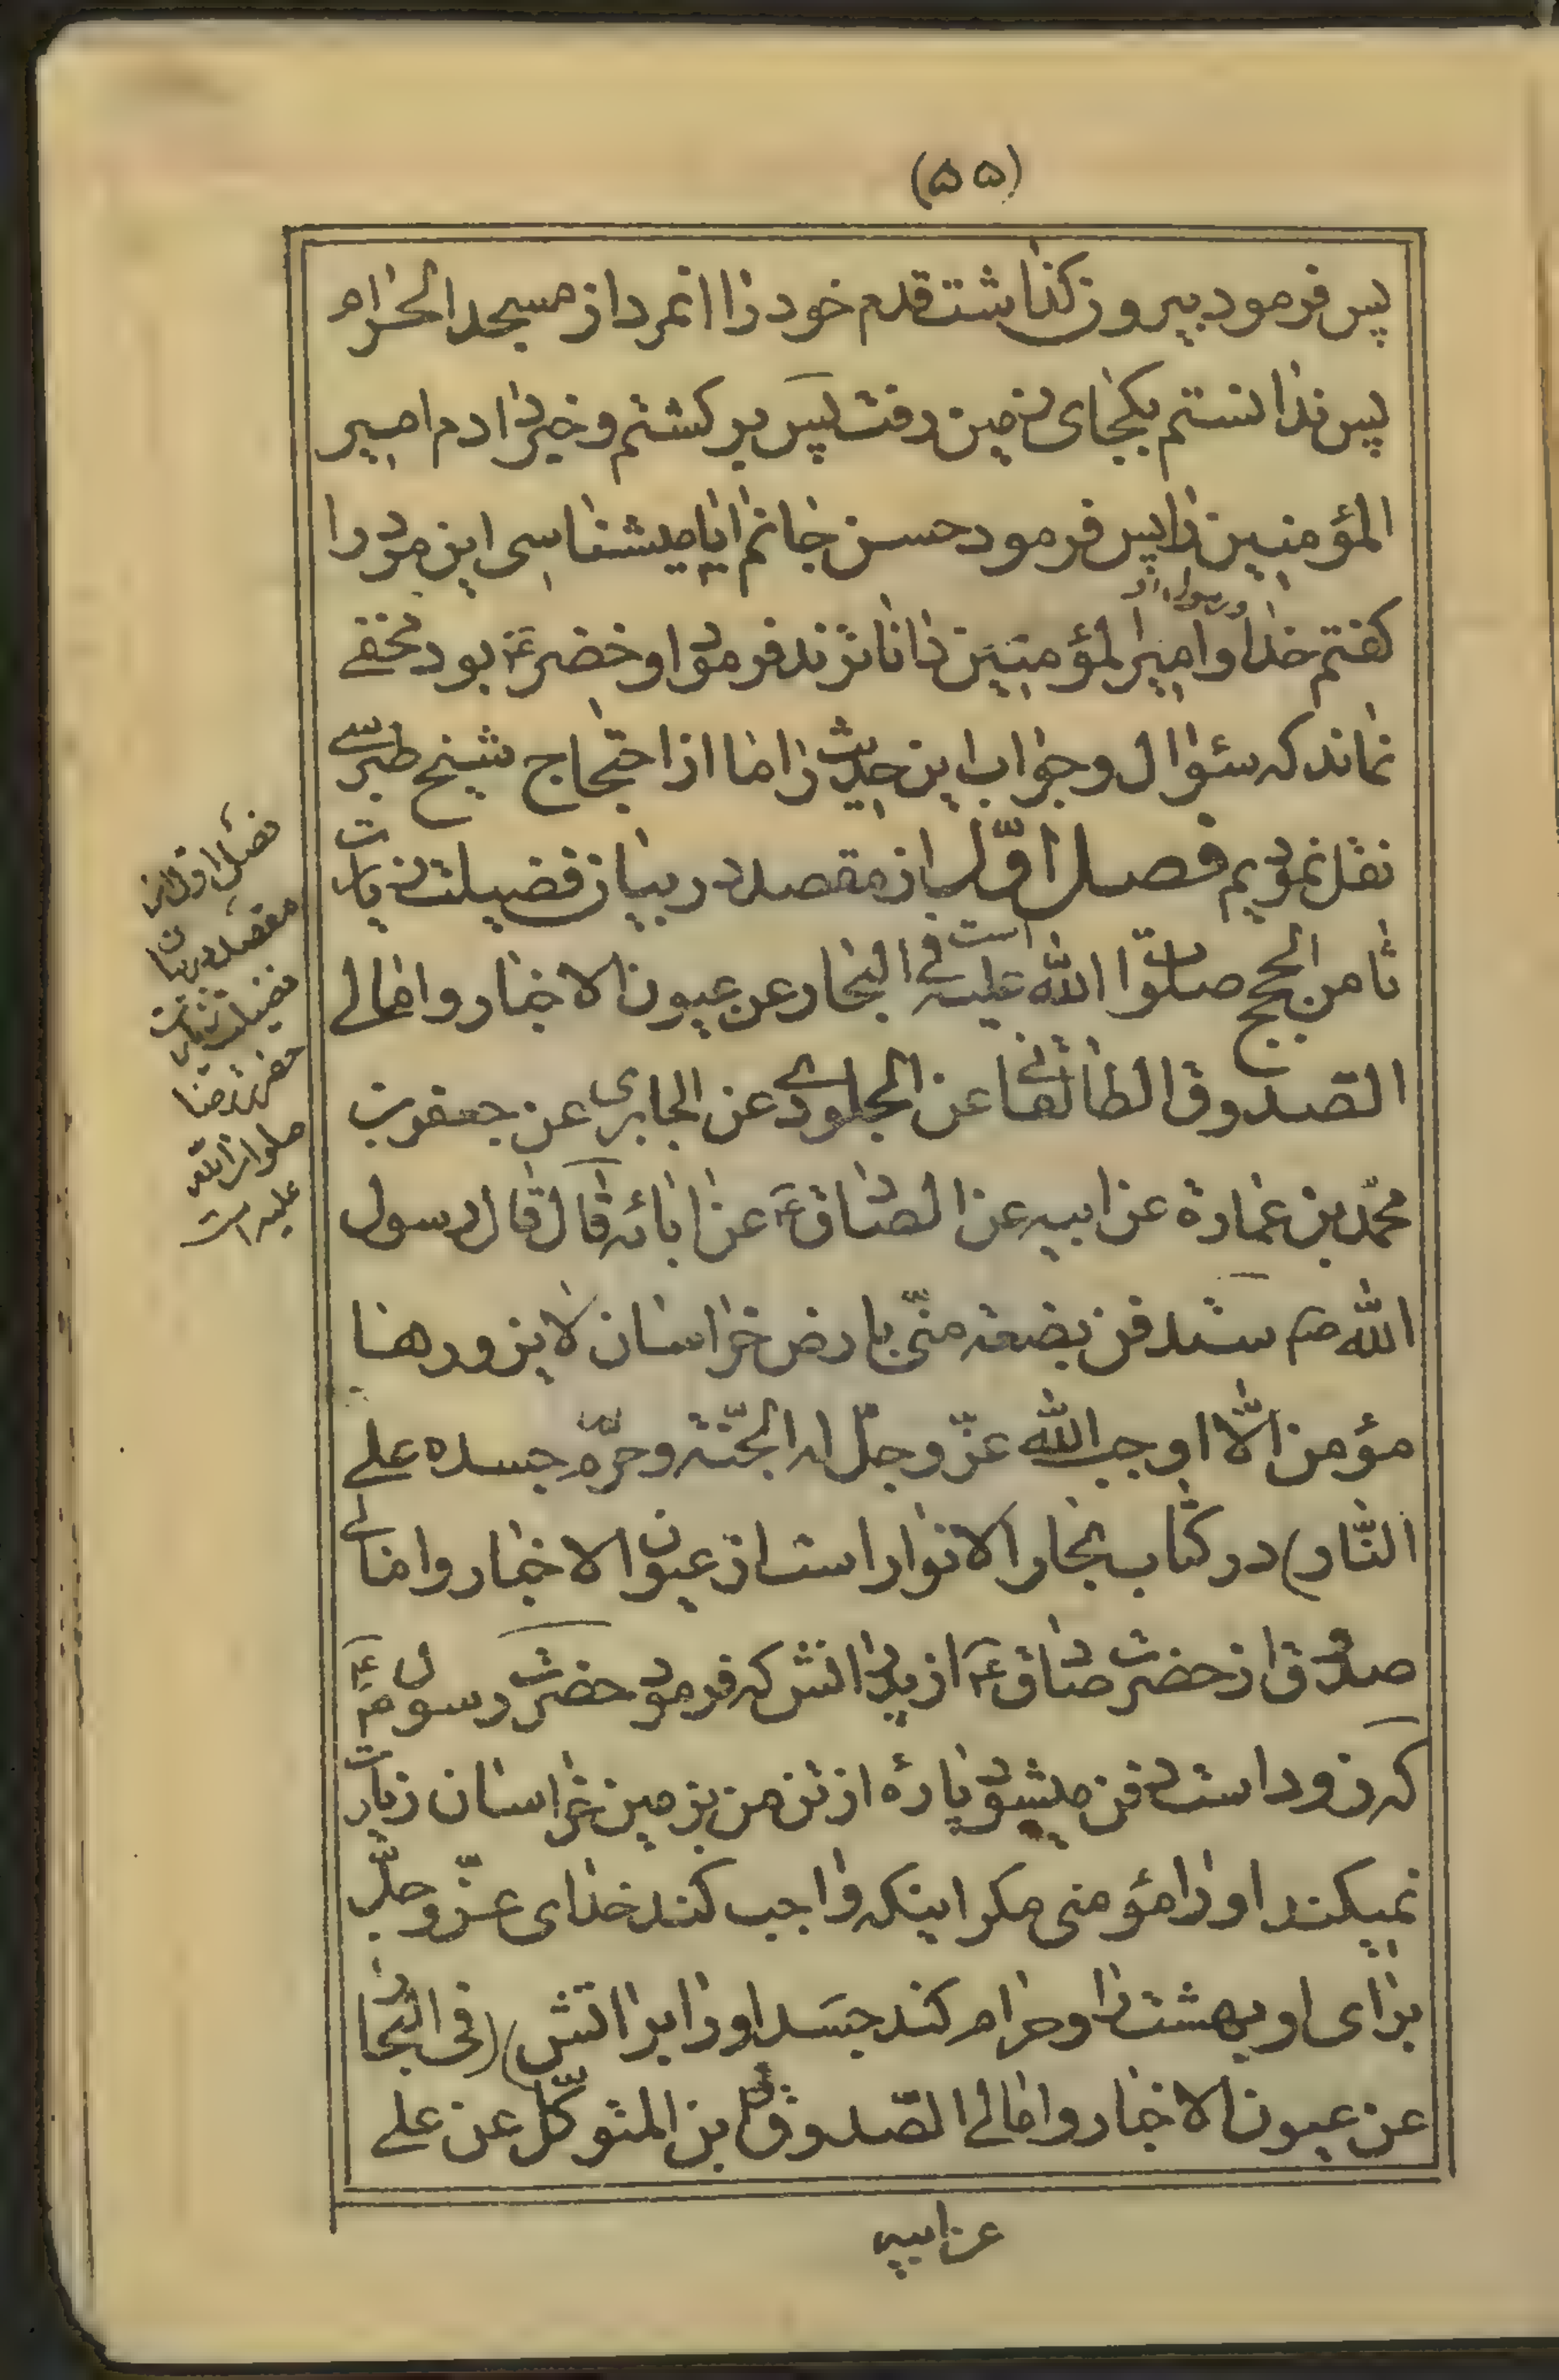 (۵۵)
پس فرمود بیرون گذاشت قدم خود را انمرد از مسجد الحرام
پس ندانستم بکجای زمین رفت پس بر گشتم و خبر دادم امیر
المؤمنین را پس فرمود حسن جانم ایا میشناسی این مرد را
و رسول او
گفتم خدا و امیر المؤمنین داناترند فرمود او خضر ع بود مخفی
نماند که سئوال و جواب این حدیث را ما از احتجاج شیخ طبرسی
نقل نمودیم فصل اوّل از مقصد در بیان فضیلت زیارت
ثامن الحجج صلوات الله علیه است فی البحار عن عیون الاخبار و امالی
الصّدوق الطالقانی عن الجلودی عن الجابری عن جعفر بن
محمّد بن عمارة عن ابیه عن الصادق ع عن ابائه قال قال رسول
الله ص ستدفن بضعة منّی بارض خراسان لا یزورها
مؤمن الّا اوجب الله عزّ و جلّ له الجنّة و حرّم جسده علی
النّار) در کتاب بحار الانوار است از عیون الاخبار و امالی
صدوق از حضرت صادق ع از پدرانش که فرمود حضرت رسول ص
که زود است دفن میشود پارهٔ از تن من بزمین خراسان زیارت
نمیکند او را مؤمنی مگر اینکه واجب کند خدای عزّ و جلّ
برای او بهشت را و حرام کند جسد او را بر اتش) (فی البحار
عن عیون الاخبار و امالی الصّدوق بن المتوکّل عن علی
عن ابیه
فصل اول از
مقصد در بیان
فضیلت زیارت
حضرت رضا
صلوات الله
علیه است